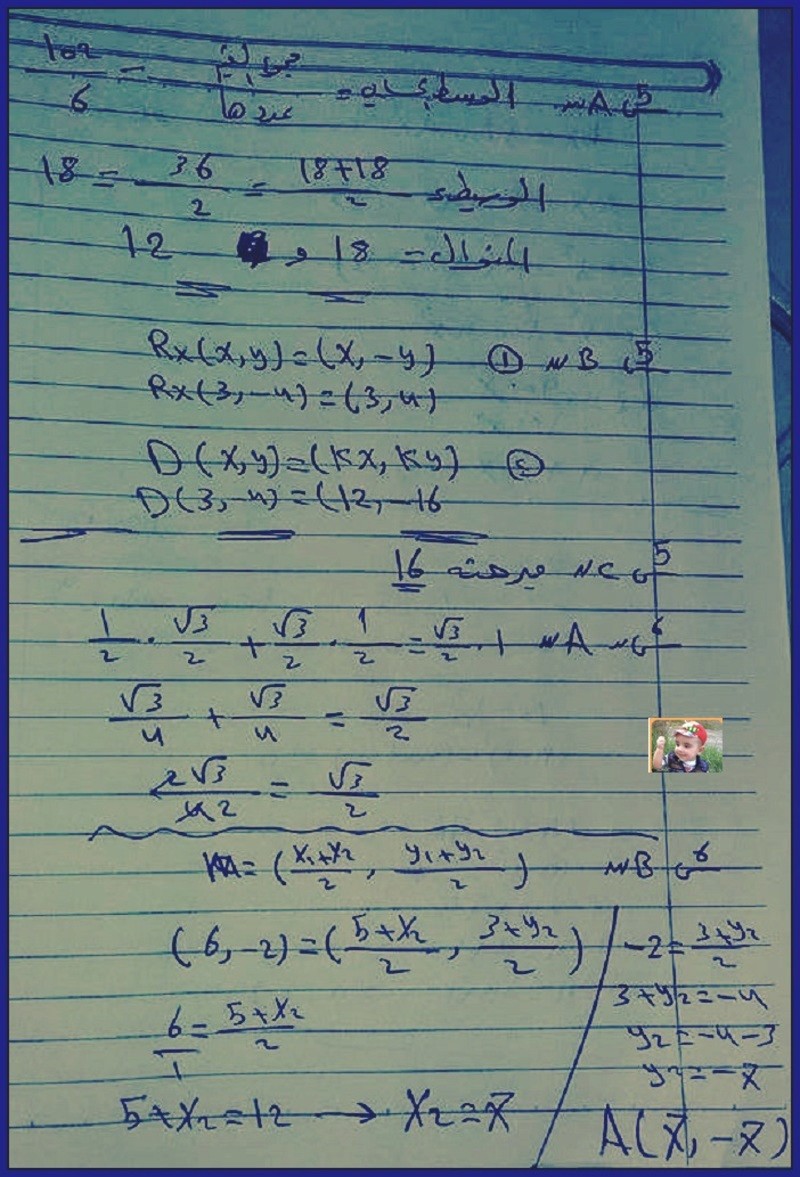 س5 A الوسط الحسابي = مجموع القيم / عددها = 102/6
الوسيط = 18+18/2 = 36/2 = 18
المنوال = 18 و 12
س5 B ① Rx(x,y)=(x,-y)
Rx(3,-4)=(3,4)
② D(x,y)=(Kx,Ky)
D(3,-4)=(12,-16
س5 C مبرهنة 16
س6 A 1/2 . √3/2 + √3/2 . 1/2 = √3/2 . 1
√3/4 + √3/4 = √3/2
2√3/4 2 = √3/2
س6 B M=(x1+x2/2, y1+y2/2)
(6,-2)=(5+x2/2, 3+y2/2)
6/1=5+x2/2
5+x2=12 → x2=7
-2=3+y2/2
3+y2=-4
y2=-4-3
y2=-7
A(7,-7)